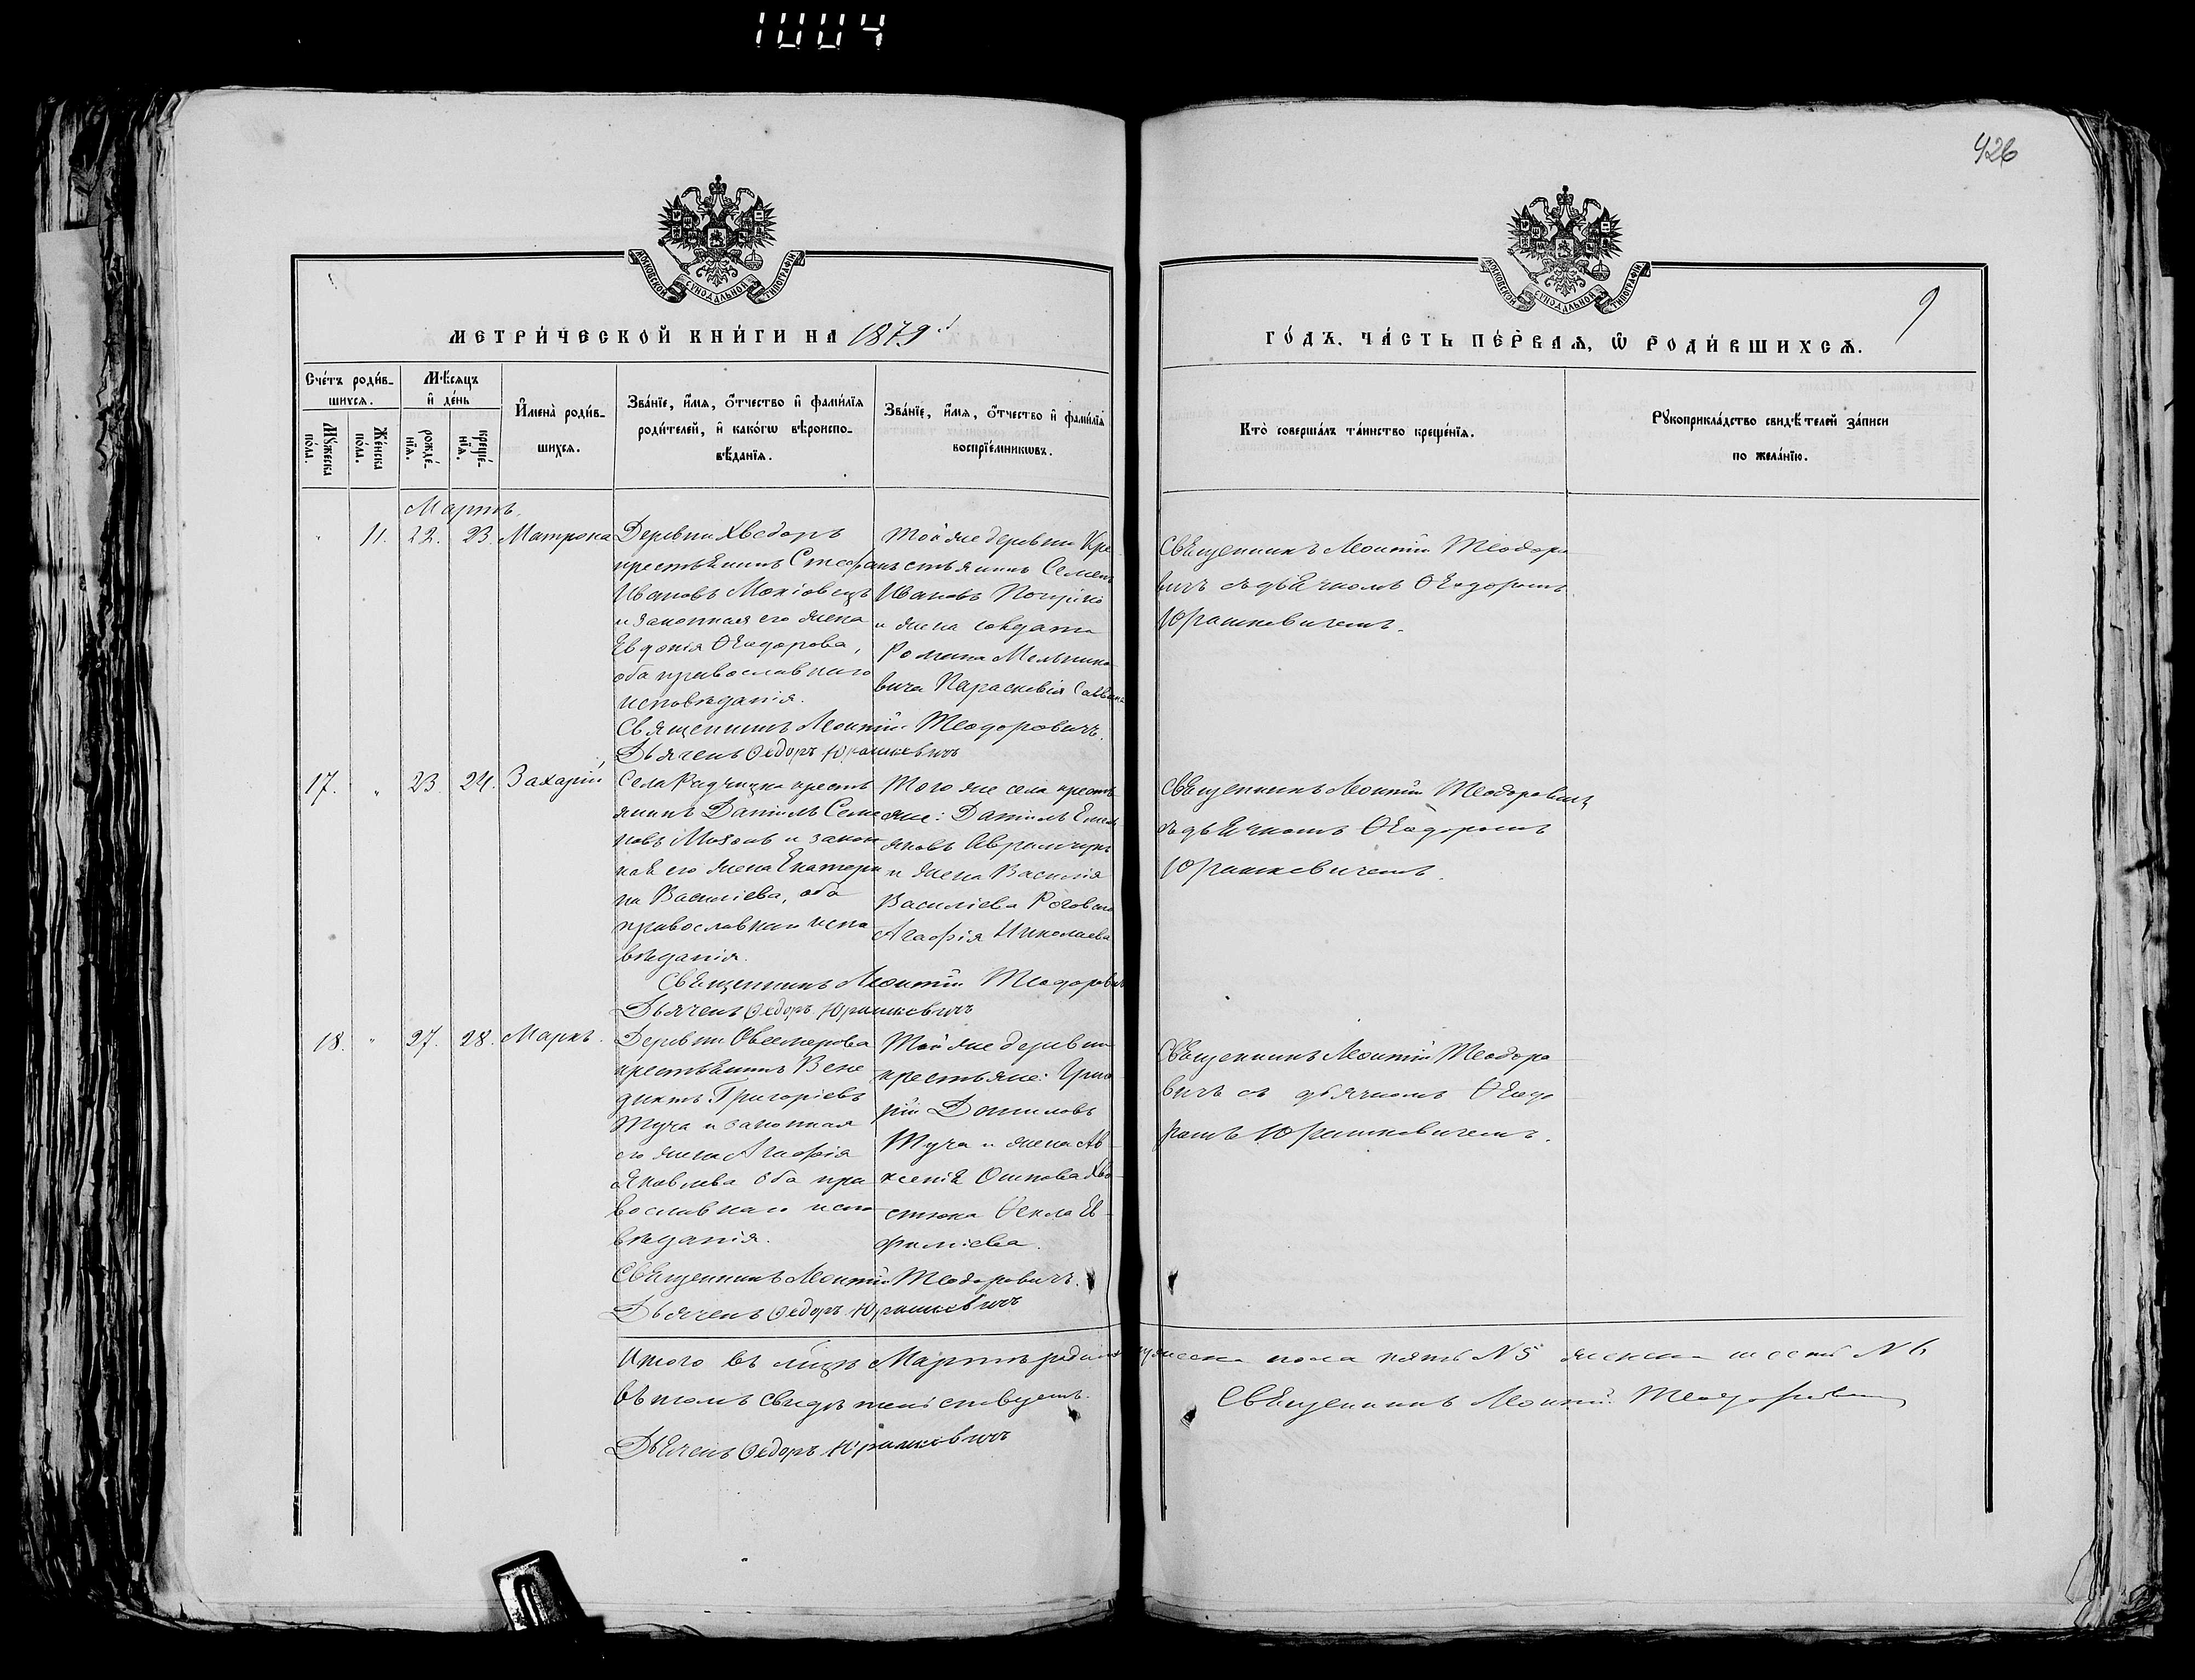 1004
426
9
МОСКОВСКОЙ СѴНОДАЛЬНОЙ ТИПОГРАФІИ
МОСКОВСКОЙ СѴНОДАЛЬНОЙ ТИПОГРАФІИ
МЕТРИ́ЧЕСКОЙ КНИ́ГИ НА 1879
ГО́ДЪ, ЧА́СТЬ ПЕ́РВАѦ, Ѿ РОДИ́ВШИХСѦ.
Сче́тъ роди́в-
шихсѧ.
Мꙋ́жеска по́ла.
Же́нска по́ла.
Мѣ́сѧцъ
и҆ де́нь
рожде́нїѧ.
креще́нїѧ.
И҆мена̀ роди́в-
шихсѧ.
Зва́нїе, и҆́мѧ, ѻ҆́тчество и҆ фами́лїѧ
роди́телей, и҆ како́гѡ вѣроиспо-
вѣ́данїѧ.
Зва́нїе, и҆́мѧ, ѻ҆́тчество и҆ фами́лїѧ
воспрїе́мникѡвъ.
Кто̀ соверша́лъ та́инство креще́нїѧ.
Рꙋкоприкла́дство свидѣ́телей за́писи
по жела́нїю.
Мартъ.
" 11. 22. 23. Матрона
Деревни Хведоръ
крестьянинъ Стефанъ
Ивановъ Моніовецъ
и законная его жена
Евдокія Ѳеодорова,
оба православнаго
исповѣданія.
Той же деревни Кре
стьянинъ Семенъ
Ивановъ
и жена солдата
Романа Мельнико
вича Параскевія
Священникъ Леонтій Теодоровичъ.
Дьячекъ Ѳедоръ Юрашкевичъ
Священникъ Леонтій Теодоро
вичъ съ дьячкомъ Ѳеодоромъ
Юрашкевичемъ.
17. " 23. 24. Захарій
Села Радчицка крестъ
янинъ Даніилъ Семе
новъ и закон
ная его жена Екатери
на Василіева, оба
православнаго испо
вѣданія.
Того же села крестъ
яне: Даніилъ Емель
яновъ Аврамчукъ
и жена Василія
Василіева
Агафія Николаева
Священникъ Леонтій Теодорович
Дьячекъ Ѳедоръ Юрашкевичъ
Священникъ Леонтій Теодоровичъ
съ дьячкомъ Ѳеодоромъ
Юрашкевичемъ.
18. " 27. 28. Маркъ.
Деревни Овсемерова
крестьянинъ Вене
диктъ Григоріевъ
Туча и законная
его жена Агафія
Яковлева оба пра
вославнаго испо
вѣданія.
Той же деревни
крестьяне: Григо
рій Даниловъ
Туча и жена Ав
ксентія Осипова Хво
стюка Ѳекла Ев
филіева.
Священникъ Леонтій Теодоровичъ.
Дьячекъ Ѳедоръ Юрашкевичъ
Священникъ Леонтій Теодоро
вичъ съ дьячкомъ Ѳеодо
ромъ Юрашкевичемъ.
Итого въ Мартѣ мужеска пола пять N 5 женска шесть N 6
Въ томъ свидѣтельствуетъ. Священникъ Леонтій Теодорович
Дьячекъ Ѳедоръ Юрашковичъ